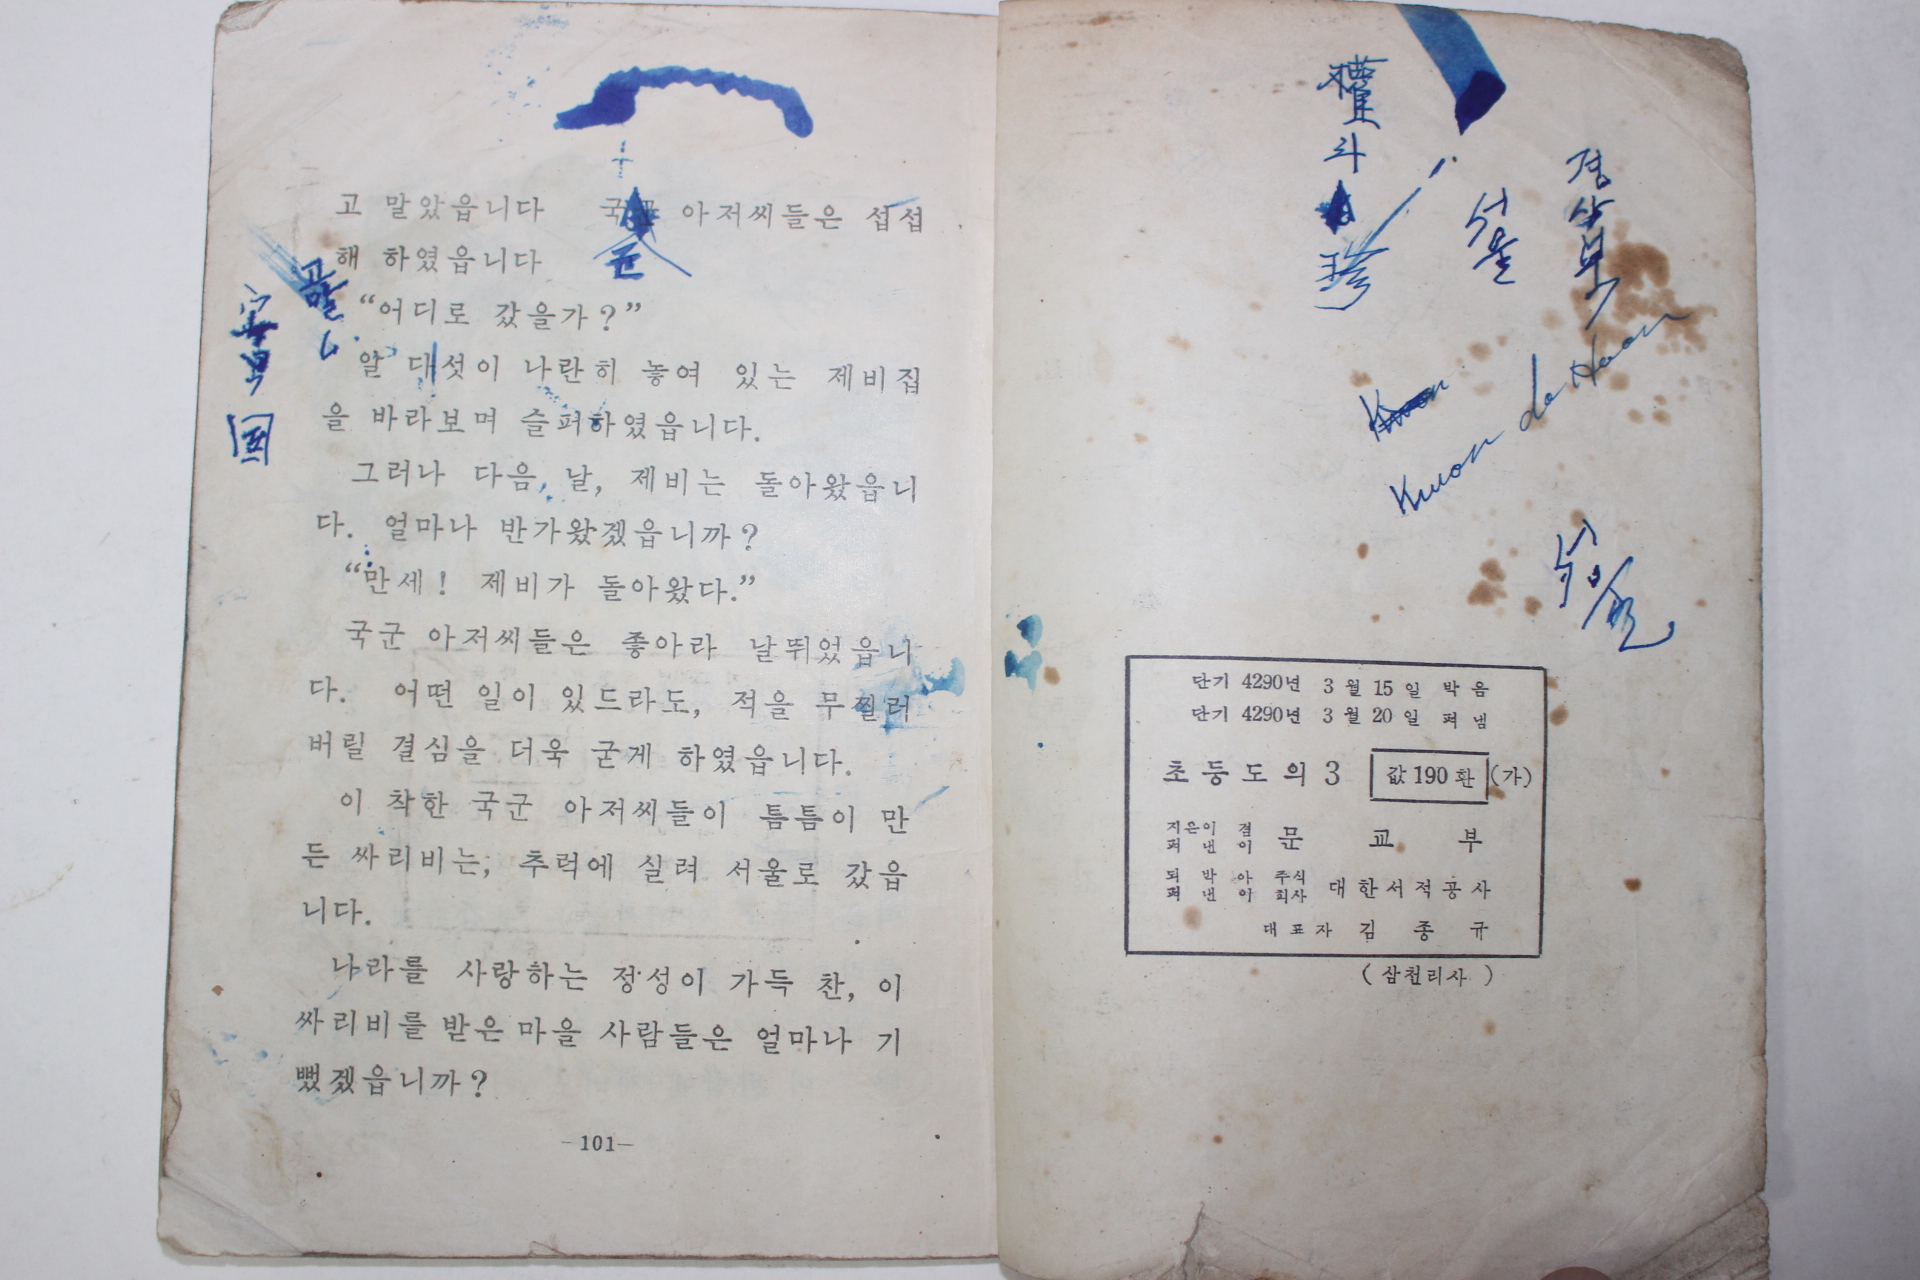 고 말았읍니다 국군 아저씨들은 섭섭
해 하였읍니다
“어디로 갔을가?”
알 대섯이 나란히 놓여 있는 제비집
을 바라보며 슬퍼하였읍니다.
그러나 다음 날, 제비는 돌아왔읍니
다. 얼마나 반가왔겠읍니까?
“만세! 제비가 돌아왔다.”
국군 아저씨들은 좋아라 날뛰었읍니
다. 어떤 일이 있드라도, 적을 무찔러
버릴 결심을 더욱 굳게 하였읍니다.
이 착한 국군 아저씨들이 틈틈이 만
든 싸리비는, 추럭에 실려 서울로 갔읍
니다.
나라를 사랑하는 정성이 가득 찬, 이
싸리비를 받은 마을 사람들은 얼마나 기
뻤겠읍니까?
-101-
國
權
珍
서울
Kwon da Hoon
단기 4290년 3월 15일 박음
단기 4290년 3월 20일 펴냄
초등도의 3 값 190 환 (가)
지은이 겸
펴낸이 문교부
되박아 주식
펴낸이 회사 대한서적공사
대표자 김종규
(삼천리사)